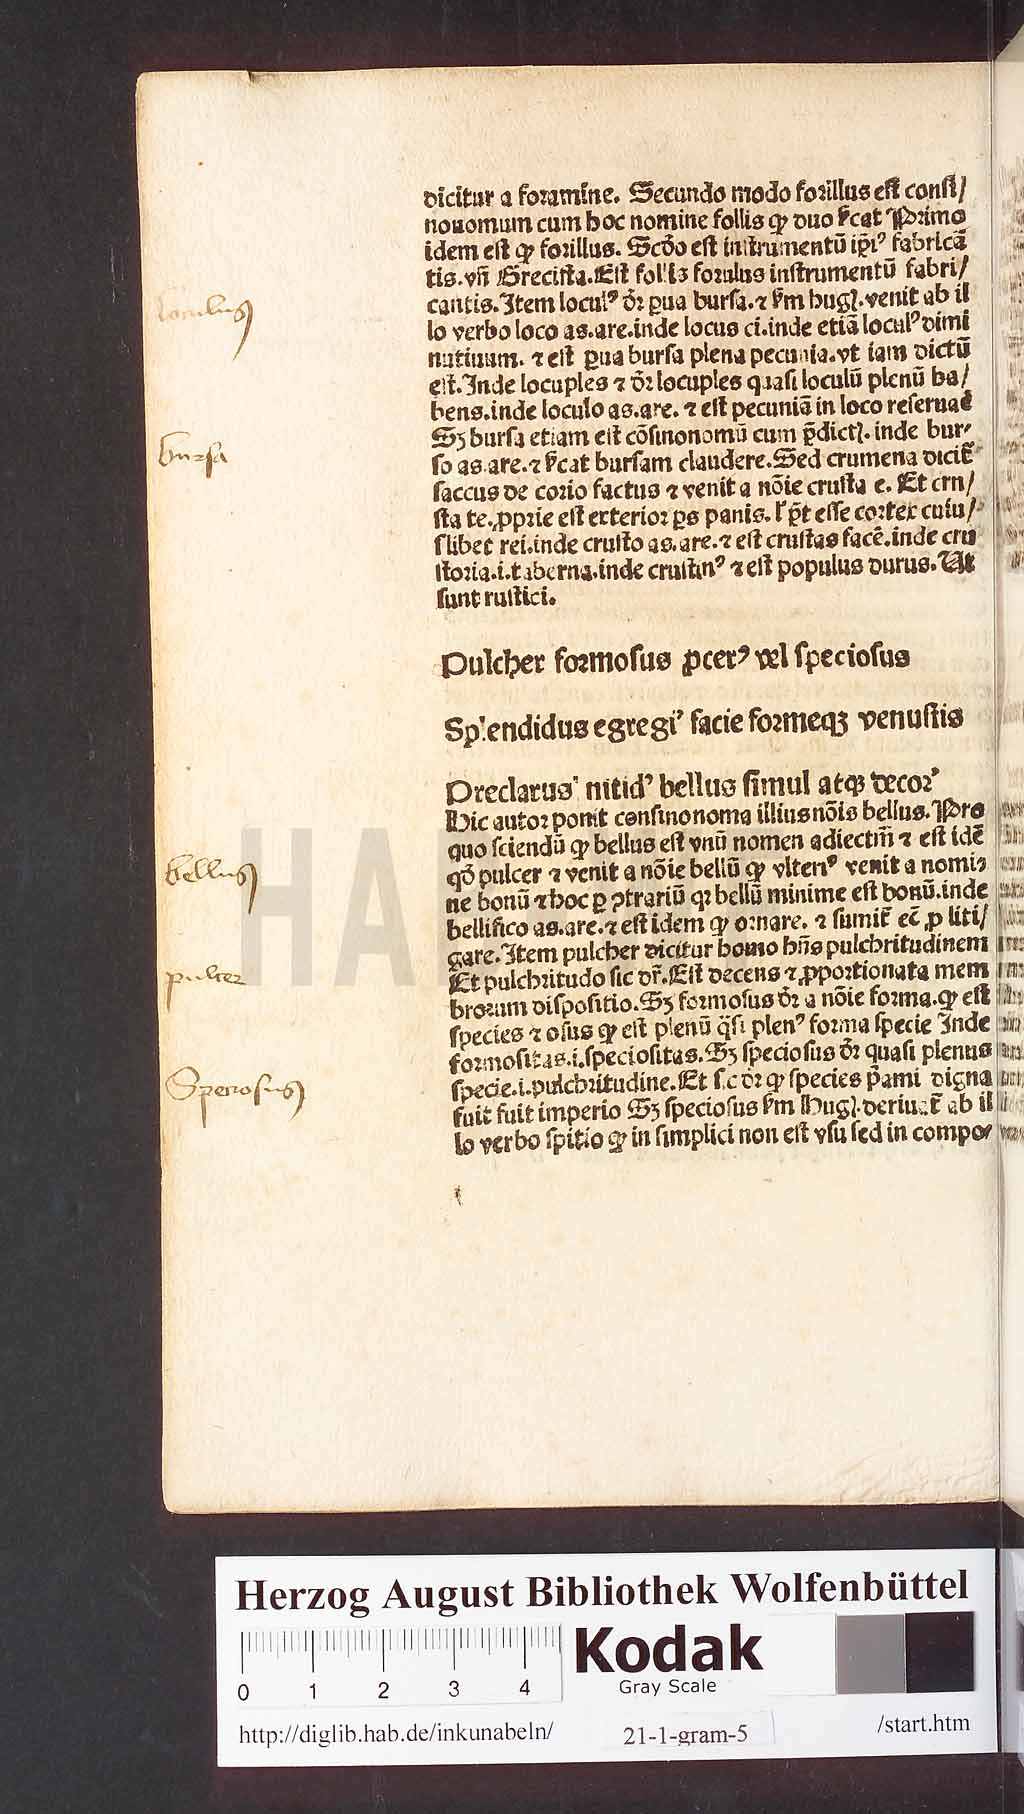 dicitur a foramine. Secundo modo forillus est consi/
nonomum cum hoc nomine follis qꝫ duo sͥcat Primo
idem est qꝫ forillus. Scďo est instrumentū ip̄iꝰ fabricā
tis. vñ Grecista. Est follis forulus instrumentū fabri/
cantis. Item loculꝰ dr̄ ꝑua bursa. ⁊ sͥm hugꝭ. venit ab il
lo verbo loco as. are. inde locus ci. inde etiā loculꝰ dimi
nutiuum. ⁊ est ꝑua bursa plena pecunia. vt iam dictū
est. Inde locuples ⁊ dr̄ locuples quasi loculū plenū ha/
bens. inde loculo as. are. ⁊ est pecuniā in loco reseruaē
Sꝫ bursa etiam est cōsinonomū cum p̄dictꝭ. inde bur-
so as. are. ⁊ sͥcat bursam claudere. Sed crumena dicit̄
saccus de corio factus ⁊ venit a nōie crusta e. Et cru/
sta te. ꝓprie est exterior ꝑs panis. l' pt̄ esse cortex cuiu/
slibet rei. inde crusto as. are. ⁊ est crustas facē. inde cru
storia. i. taberna. inde crustinꝰ ⁊ est populus durus. Ut
sunt rustici.
Pulcher formosus ꝓcerꝰ vel speciosus
Splendidus egregiꝰ facie formeqꝫ venustis
Preclarus nitidꝰ bellus simul atqꝫ decorꝰ
Hic autor ponit consinonoma illius nōis bellus. Pro
quo sciendū qꝫ bellus est vnū nomen adiectm̄ ⁊ est idē
qď pulcer ⁊ venit a nōie bellū qꝫ vlteriꝰ venit a nomi
ne bonū ⁊ hoc ꝑ ꝯtrariū qꝛ bellū minime est bonū. inde
bellifico as. are. ⁊ est idem qꝫ ornare. ⁊ sumit̄ ec̄ ꝓ liti/
gare. Item pulcher dicitur homo hn̄s pulchritudinem
Et pulchritudo sic dr̄. Est decens ⁊ ꝓportionata mem
brorum dispositio. Sꝫ formosus dr̄ a nōie forma. qꝫ est
species ⁊ osus qꝫ est plenū q̄si plenꝰ forma specie Inde
formositas. i. speciositas. Sꝫ speciosus dr̄ quasi plenus
specie. i. pulchritudine. Et sic dr̄ qꝫ species p̄ami digna
fuit fuit imperio Sꝫ speciosus sͥm Hugꝭ. deriuat̄ ab il
lo verbo spitio qꝫ in simplici non est vsu sed in compo-
loculus
bursa
bellus
pulcer
Speciosus
HAB
Herzog August Bibliothek Wolfenbüttel
0 1 2 3 4
Kodak
Gray Scale
http://diglib.hab.de/inkunabeln/
21-1-gram-5
/start.htm